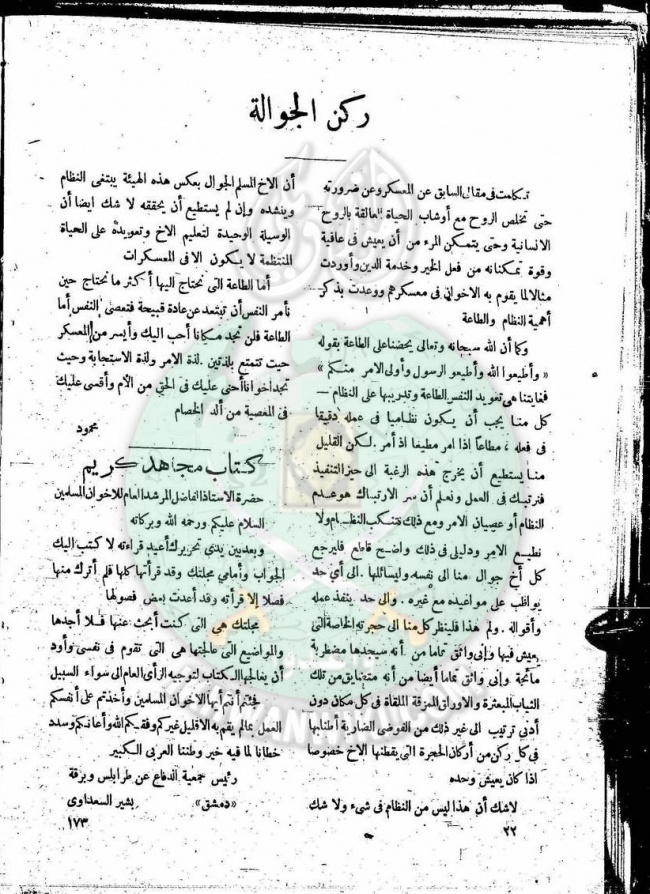 ركن الجوالة
تكلمت فى مقالى السابق عن المعسكر وعن ضرورته
حتى تخلص الروح مع أوشاب الحياة العالقة بالروح
الانسانية وحتى يتمكن المرء من أن يعيش فى عافية
وقوة تمكنانه من فعل الخير وخدمة الدين وأوردت
مثالا لما يقوم به الاخوان فى معسكرهم ووعدت بذكر
أهمية النظام والطاعة
وكما أن الله سبحانه وتعالى يحضنا على الطاعة بقوله
« وأطيعوا الله وأطيعو الرسول وأولى الامر منكم »
فغايتنا هى تعويد النفس الطاعة وتدريبها على النظام —
كل منا يجب أن يكون نظاميا فى عمله دقيقا
فى فعله ، مطاعاً اذا امر مطيعا اذ أمر . لكن القليل
منا يستطيع أن يخرج هذه الرغبة الى حيز التنفيذ
فنرتبك فى العمل ونعلم أن سر الارتباك هو عدم
النظام أو عصيان الامر ومع ذلك نتنكب النظام ولا
نطيع الامر ودليلى فى ذلك واضح قاطع فليرجع
كل أخ جوال منا الى نفسه وليسائلها . الى أى حد
يواظب على مواعيده مع غيره . والى حد ينفذ عمله
وأقواله . ولم هذا فلينظر كل منا الى حجرته الخاصة التى
يعيش فيها وإنى واثق تماما من أنه سيجدها مضطربة
مائجة وإنى واثق تماما أيضا من أنه متضايق من تلك
الثياب المبعثرة والاوراق الممزقة الملقاة فى كل مكان دون
أدنى ترتيب الى غير ذلك من الفوضى الضاربة أطنابها
فى كل ركن من أركان الحجرة التى يقطنها الاخ خصوصا
اذا كان يعيش وحده
لاشك أن هذا ليس من النظام فى شىء ولا شك
٢٢
أن الاخ المسلم الجوال بعكس هذه الهيئة يبتغى النظام
وينشده وإن لم يستطيع أن يحققه لا شك ايضا أن
الوسيلة الوحيدة لتعليم الاخ وتعويده على الحياة
المنتظمة لا يكون الا فى المعسكرات
أما الطاعة التى نحتاج اليها أكثر ما نحتاج حين
نأمر النفس أن تبتعد عن عادة قبيحة فتعصى النفس أما
الطاعة فلن تجد مكانا أحب اليك وأيسر من المعسكر
حيث تتمتع بلذتين . لذة الامر ولذة الاستجابة وحيث
تجد اخوانا أحنى عليك فى الحق من الأم وأقسى عليك
فى المعصية من ألد الخصام
محمود
كتاب مجاهد كريم
حضرة الاستاذ الفاضل المرشد العام للاخوان المسلمين
السلام عليكم ورحمة الله وبركاته
وبعد بين يدى تحريرك أعيد قراءته لا كتب اليك
الجواب وأمامى مجلتك وقد قرأتها كلها فلم أترك منها
فصلا إلا قرأته وقد أعدت بعض فصولها
مجلتك هى التى كنت أبحث عنها فلا أجدها
والمواضيع التى عالجتها هى التى تقوم فى نفسى وأود
أن يعالجها الكتاب لتوجيه الرأى العام الى سواء السبيل
فجئتم أنتم أيها الاخوان المسلمين وأخذتم على أنفسكم
العمل بما لم يقم به الا قليل غيركم وفقكم الله وأعانكم وسدد
خطانا لما فيه خير وطننا العربى الكبير
رئيس جمعية الدفاع عن طرابلس وبرقة
« دمشق » بشير السعداوى
١٧٣